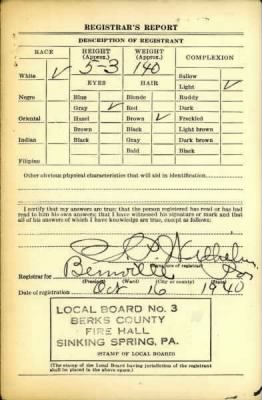 REGISTRAR'S REPORT
DESCRIPTION OF REGISTRANT
RACE HEIGHT (Approx.) WEIGHT (Approx.) COMPLEXION
5-3 140
White ✓ Sallow
EYES HAIR Light ✓
Negro Blue Blonde Ruddy
Gray ✓ Red Dark
Oriental Hazel Brown ✓ Freckled
Brown Black Light brown
Indian Black Gray Dark brown
Bald Black
Filipino
Other obvious physical characteristics that will aid in identification
I certify that my answers are true; that the person registered has read or has had read to him his own answers; that I have witnessed his signature or mark and that all of his answers of which I have knowledge are true, except as follows:
(Signature of registrar)
Registrar for Bernville Pa
(Precinct) (Ward) (City or county) (State)
Date of registration Oct 16 1940
LOCAL BOARD No. 3
BERKS COUNTY
FIRE HALL
SINKING SPRING, PA.
(STAMP OF LOCAL BOARD)
(The stamp of the Local Board having jurisdiction of the registrant shall be placed in the above space.)